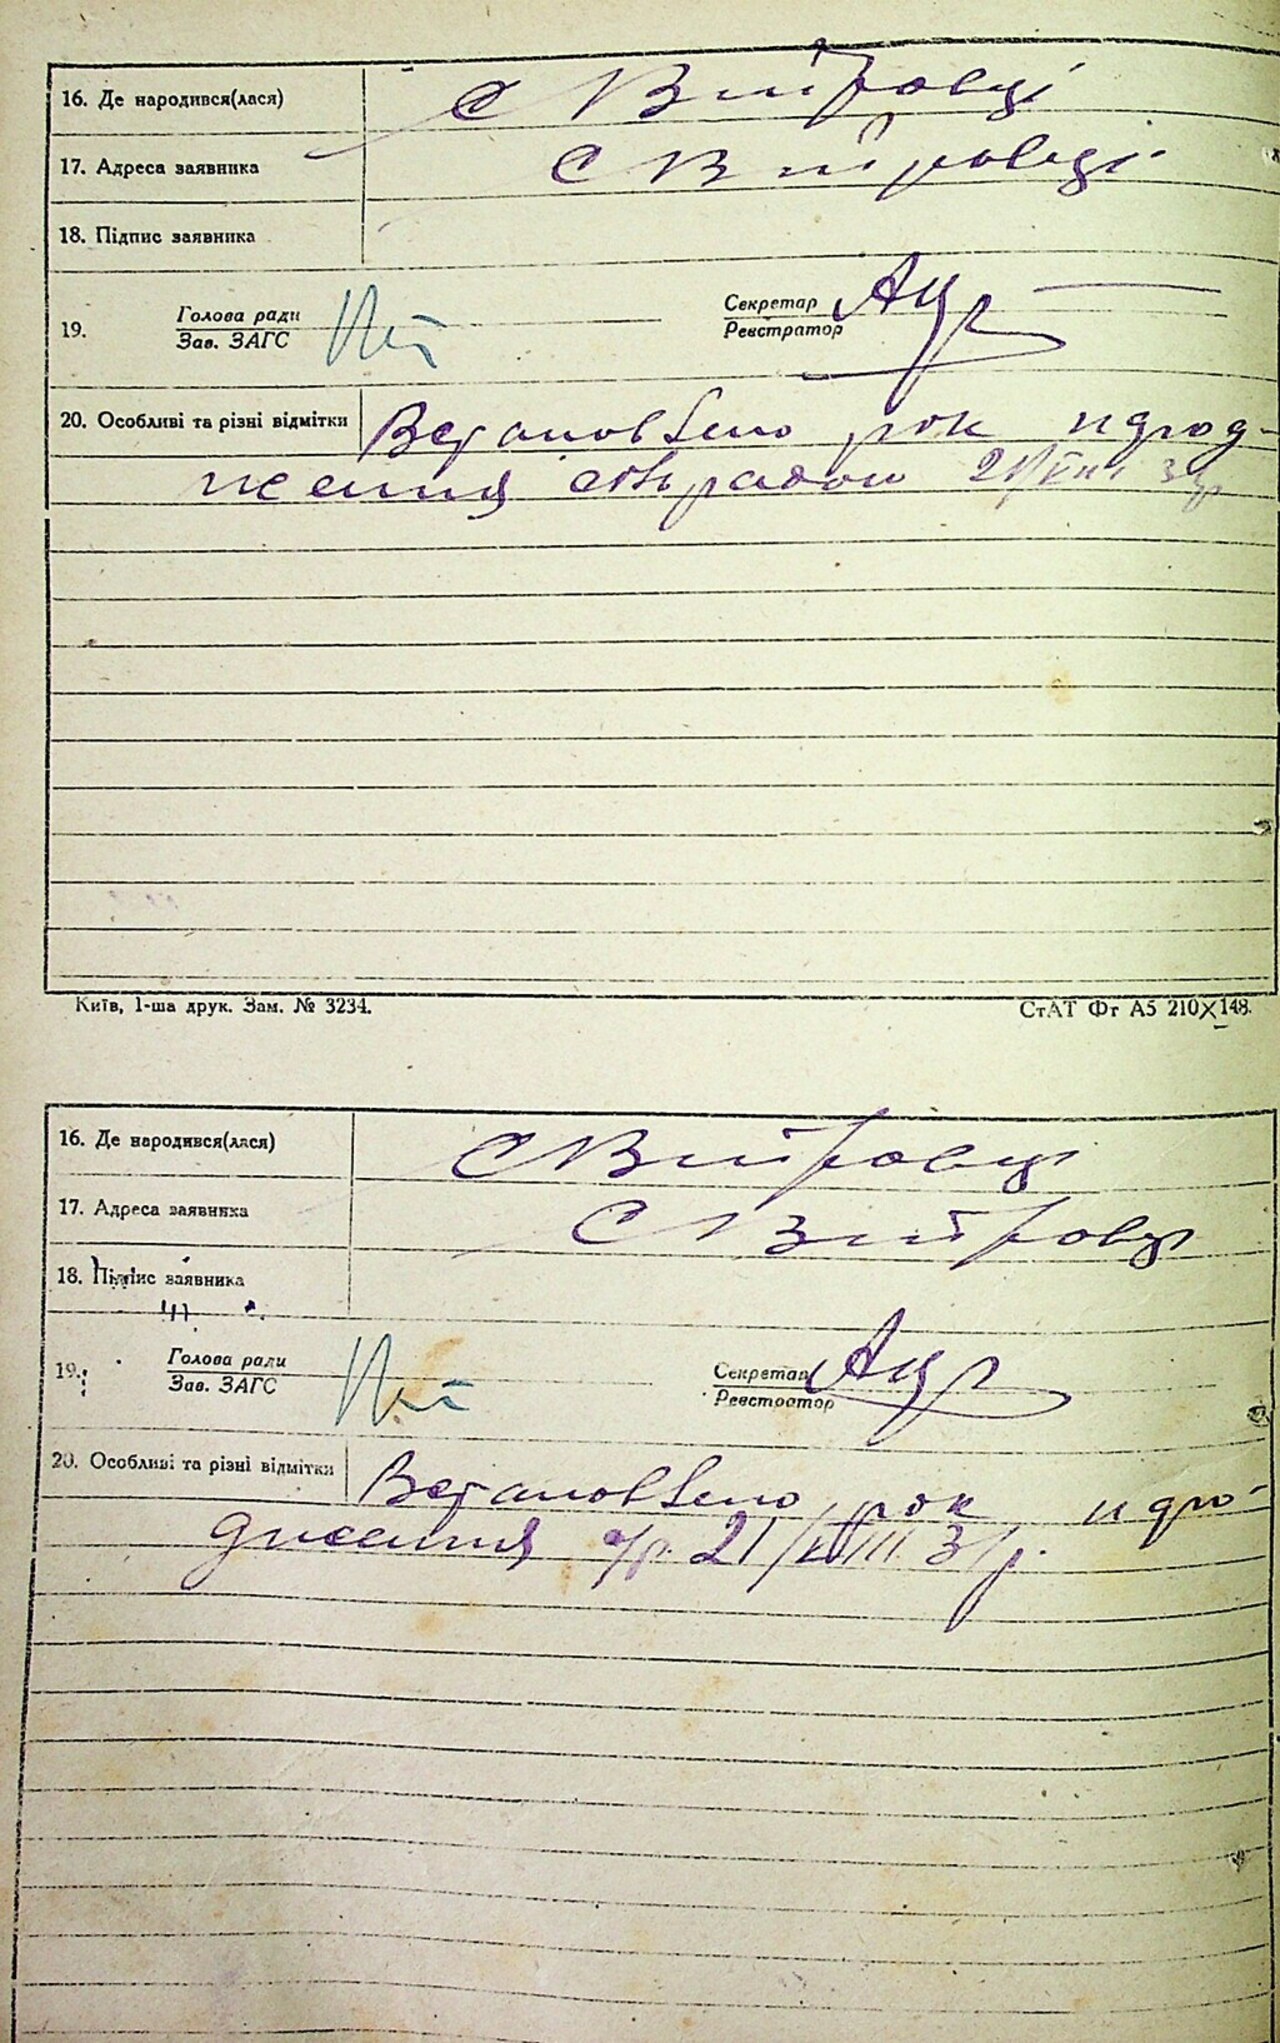 16. Де народився(лася) с Витровці
17. Адреса заявника с Витровці
18. Підпис заявника
19. Голова ради
Зав. ЗАГС
Секретар
Реєстратор
20. Особливі та різні відмітки Встановлено рок народ-
ження 21/VIII 31р
Київ, 1-ша друк. Зам. № 3234.
СтАТ Фт А5 210X148.
16. Де народився(лася) с Витровці
17. Адреса заявника с Витровці
18. Підпис заявника
19. Голова ради
Зав. ЗАГС
Секретар
Реєстратор
20. Особливі та різні відмітки Встановлено рок наро-
дження 21/VIII 31р.